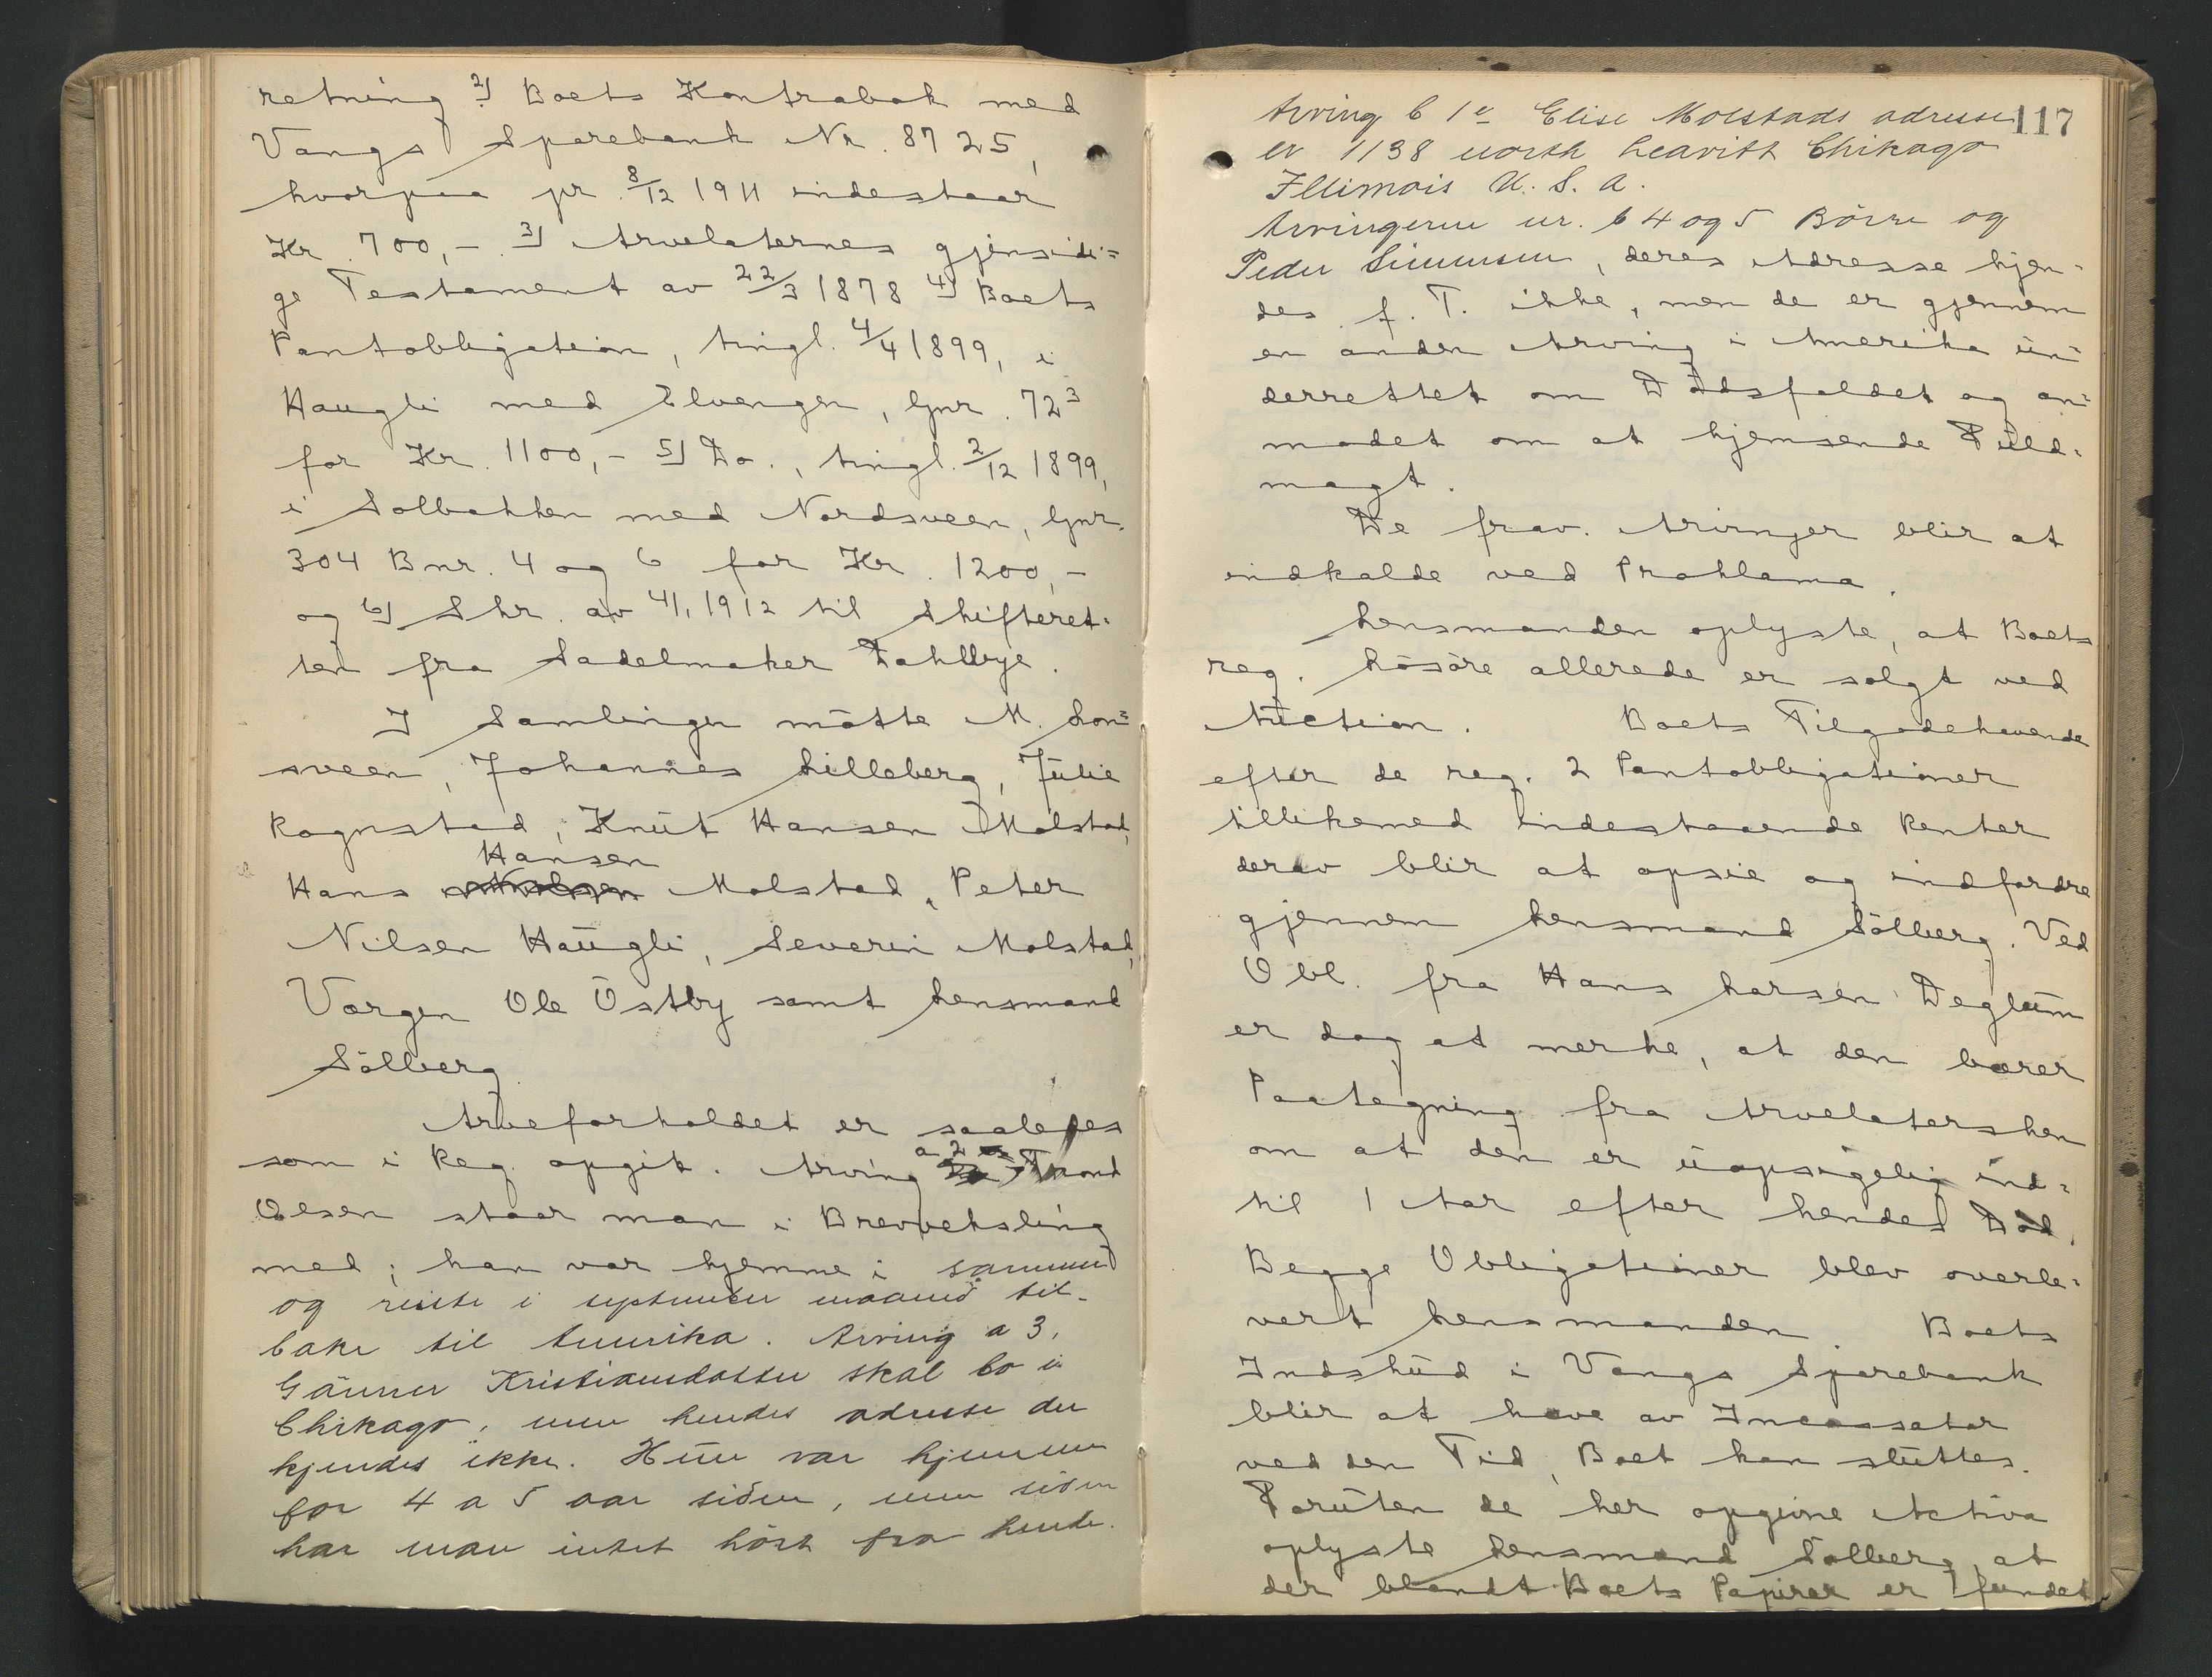 retning 2) Boets Kontrabok med
Vangs Sparebank Nr. 8725,
hvorpaa pr. 8/12 1911 indestaar
Kr. 700,- 3) Arvelaternes gjensidi=
ge Testament av 22/3 1878 4) Boets
Pantobligation, tingl. 4/4 1899, i
Haugli med Elvengen, Gnr. 72³
for Kr. 1100,- 5) Do., tingl. 2/12 1899,
i Solbakken med Nordsveen, Gnr.
304 Bnr. 4 og 6 for Kr. 1200,-
og 6) Skr. av 4/1 1912 til Skifteret-
ten fra Sadelmaker Dahlbye.
I Samlingen mötte M. Lon=
sveen, Johannes Lilleberg, Julie
Rognstad, Knut Hansen Molstad,
Hansen
Hans Molstad, Peter
Nilsen Haugli, Severin Molstad,
Værgen Ole Östby samt Lensmand
Sölberg
Arveforholdet er saaledes
som i Reg. opgit. Arving a 2 Trond
Olsen staar man i Brevveksling
med; han var hjemme i sommer
og reiste i september maaned til-
bake til Amerika. Arving a 3,
Gunner Kristiansdatter skal bo i
Chikago, men hendes adresse der
kjendes ikke. Hun var hjemme
for 4 a 5 aar siden, men siden
har man intet hört fra hende.
117
Arving b 1 e Elise Molstads adresse
er 1138 north Leavitt Chikago
Illimois U. S. A.
Arvingerne nr. b 4 og 5 Börre og
Peder Simensen, deres Adresse kjen-
des f. T. ikke, men de er gjennem
en anden Arving i Amerika un-
derrettet om Dödsfaldet og an-
modet om at hjemsende Fuld-
magt.
De frav. Arvinger blir at
indkalde ved Proklama.
Lensmanden oplyste, at Boets
reg. Lösöre allerede er solgt ved
Auction. Boets Tilgodehavende
efter de reg. 2 Pantobligationer
tillikemed indestaaende Renter
derav blir at opsie og indfordre
gjennem Lensmand Sölberg. Ved
Obl. fra Hans Larsen Deglum
er dog at merke, at den bærer
Paategning fra Arvelatersken
om at den er uopsigelig ind-
til 1 Aar efter hendes Död.
Begge Obligationer blev overle-
vert Lensmanden. Boets
Indskud i Vangs Sparebank
blir at hæve av Incassator
ved den Tid, Boet kan sluttes.
Foruten de her opgivne Activa
oplyste Lensmand Sölberg, at
der blandt Boets Papirer er fundet